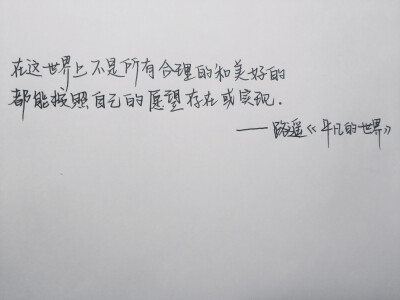 在这世界上不是所有合理的和美好的
都能按照自己的愿望存在或实现.
——路遥《平凡的世界》